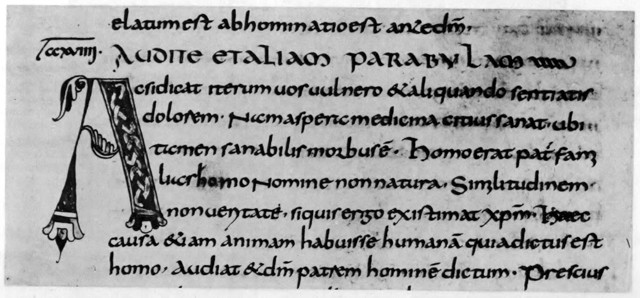 elatum est abhominatio est dm̄.
ccxviiii. AUDITE ET ALIAM PARABULAM
Acsi dicat iterum uos uulnero & aliquando sentiatis
dolorem. Nam aspera medicina citius sanat. ubi
tamen sanabilis morbus ē. Homo erat pat̄ fam̄
homo nomine non natura. Similitudinem
non ueritate. siquis ergo existimat xpm̄
causa &iam animam habuisse humanā quia dictus est
homo. Audiat & dm̄ patrem hominē dictum. Prescius